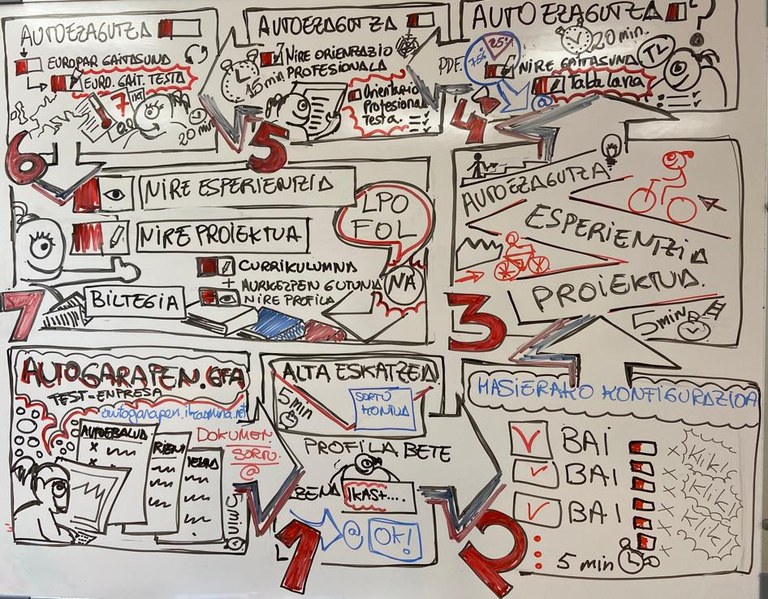 AUTOEZAGUTZA
EUROPAR GAITASUNA
EURO. GAIT. TESTA
20 min
AUTOEZAGUTZA
NIRE ORIENTAZIO
PROFESIONALA
15 min
Orientazio
Profesional
Testa.
AUTOEZAGUTZA
20 min.
PDF.
75%
25%
NIRE GAITASUNA
Tabalaria
TL
?
@
4
5
6
NIRE ESPERIENTZIA
NIRE PROIEKTUA
LPO
FOL
CURRIKULUMNA
+ AURKEZPEN GUTUNA
NIRE PROFILA
NA
BILTEGIA
7
AUTOEZAGUTZA
ESPERIENTZIA
PROIEKTUA.
5 min
3
AUTOGARAPEN.GFA
TEST-ENPRESA
autogarapen.ikasmina.net
AUTOEBALUA
DOKUMEN
SORTU
@
5 min
ALTA ESKATZEA
5 min
SORTU
KONTUA
PROFILA BETE
BEHA
IKAST....
@ OK!
1
HASIERAKO KONFIGURAZIOA
BAI
BAI
BAI
Kliki
Kliki
Kliki
5 min
2